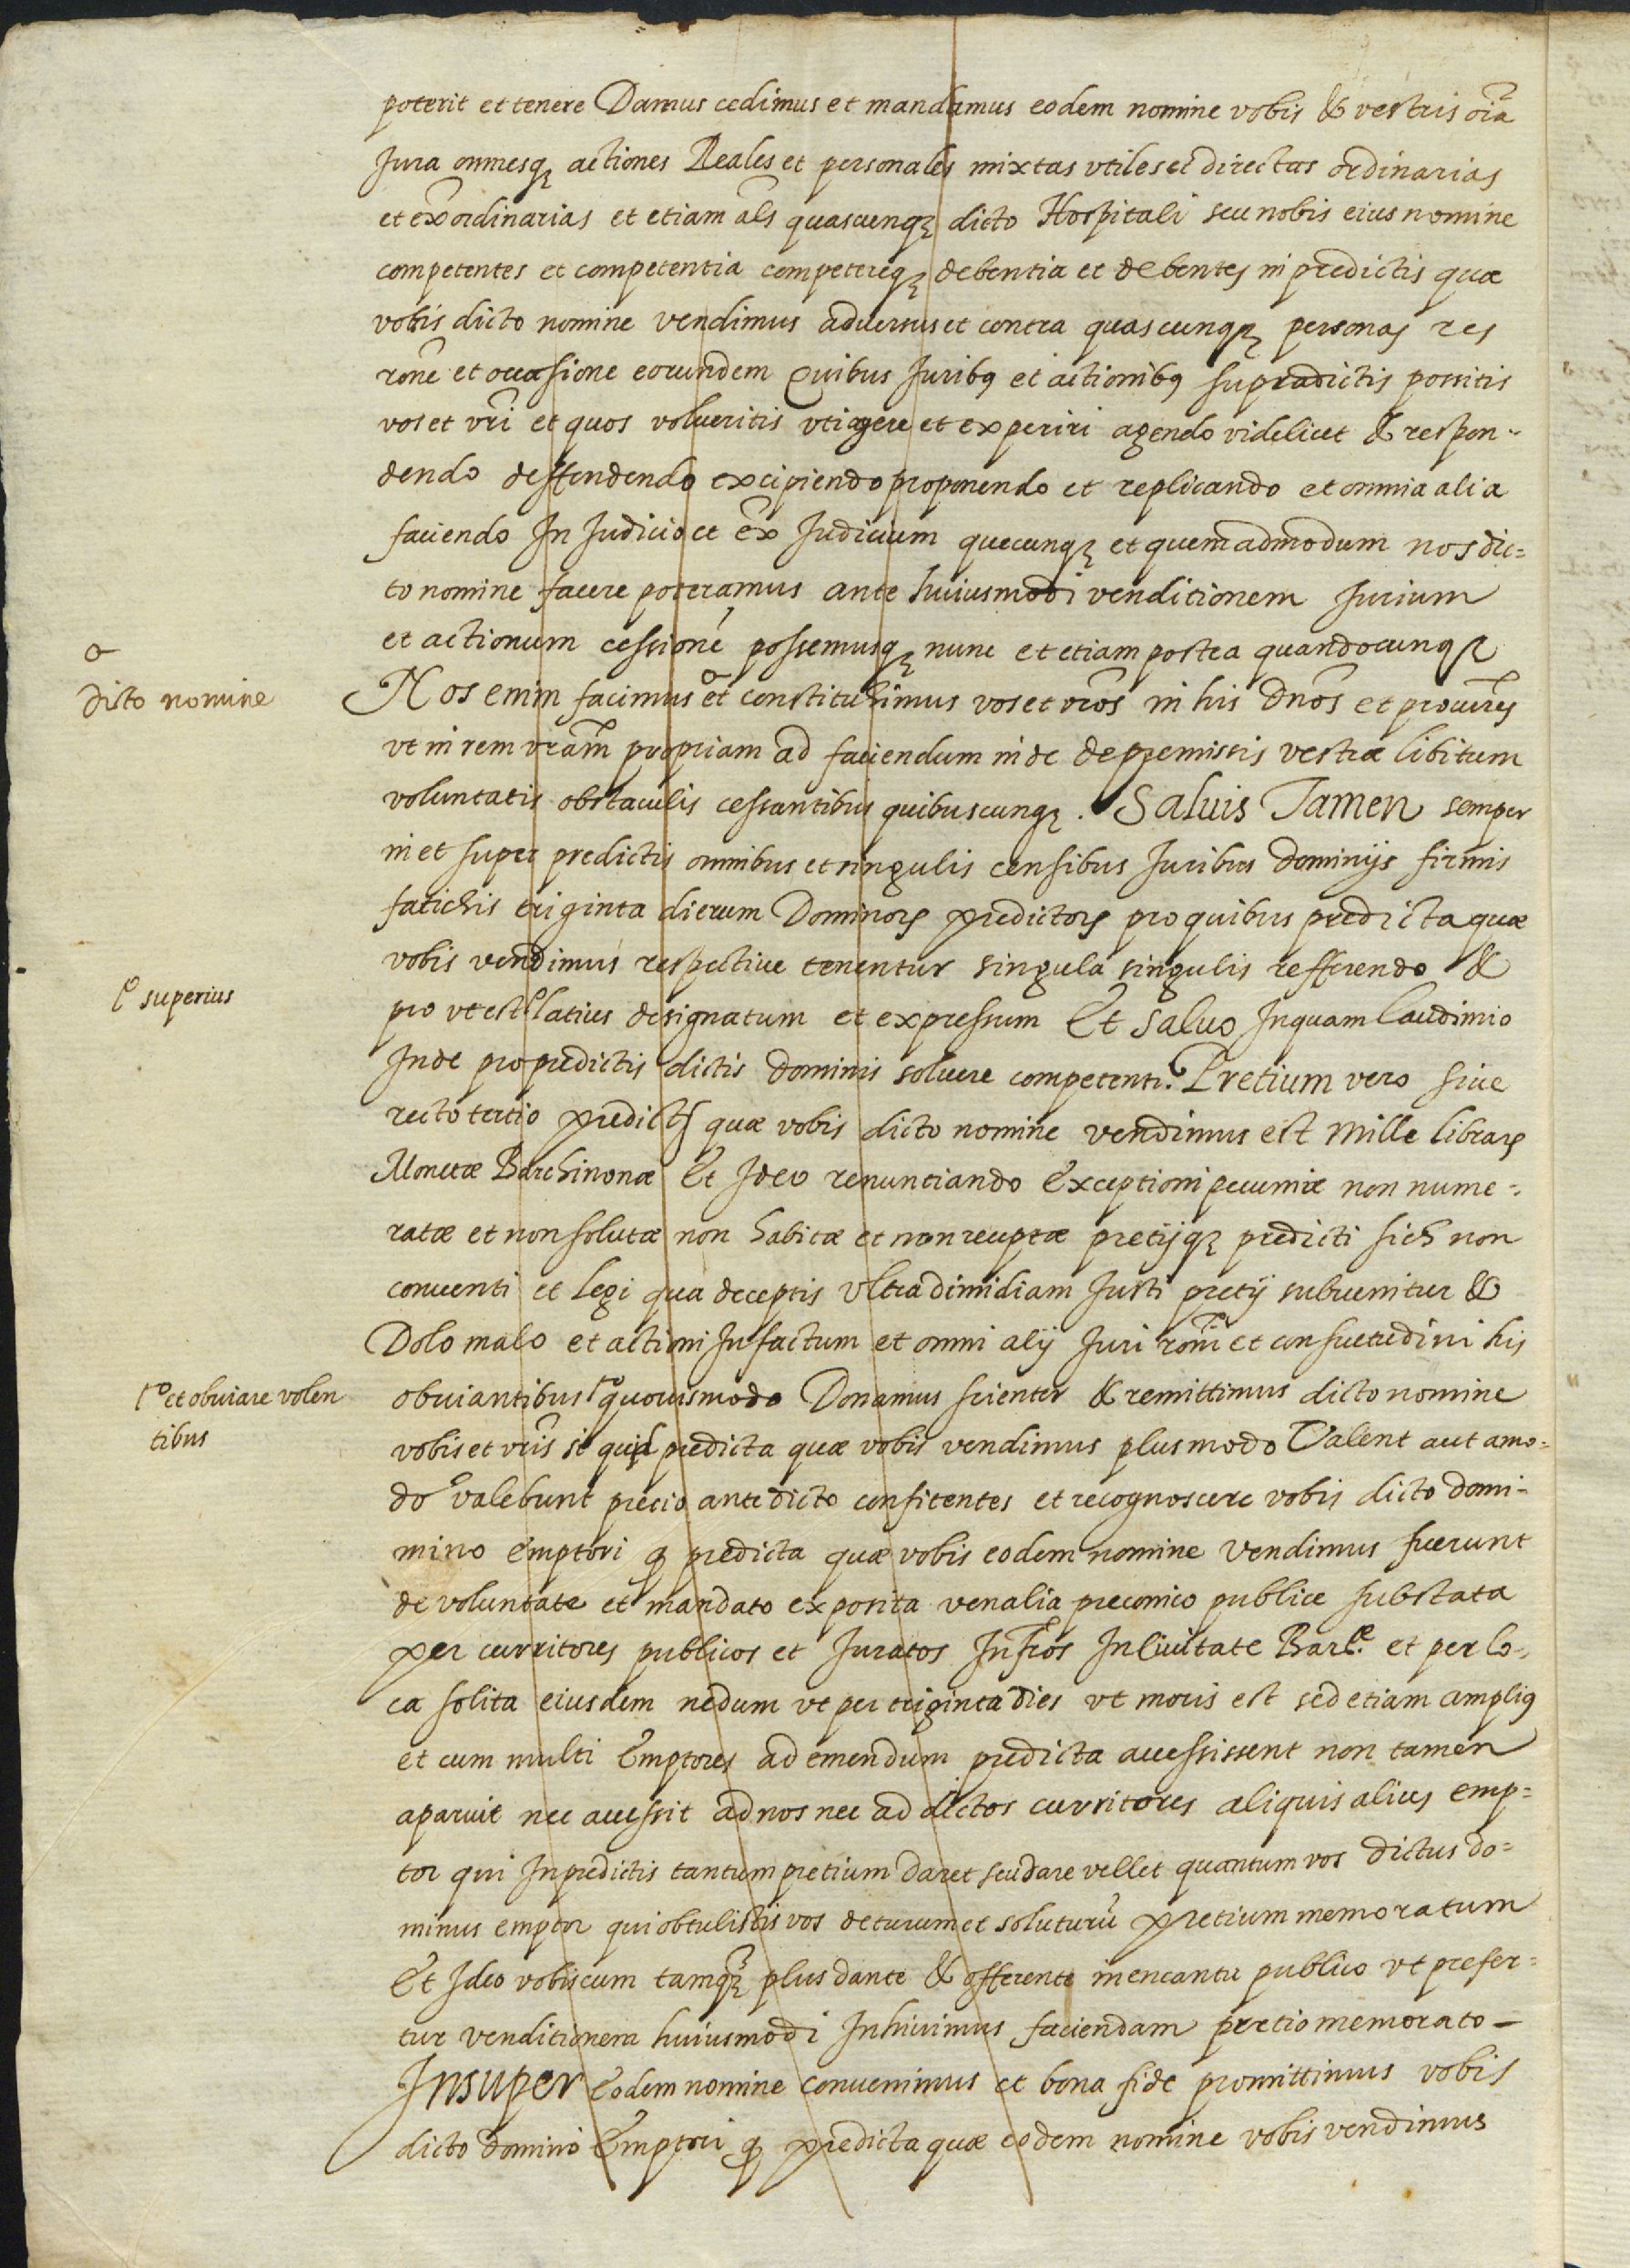 poterit et tenere Damus cedimus et mandamus eodem nomine vobis & vestris oĩa
Jura omnesqȝ actiones Reales et personales mixtas vtiles et directas ordinarias
et exordinarias et etiam als quascunqȝ dicto Hospitali seu nobis eius nomine
competentes et competentia competereqȝ debentia et debentes in predictis quæ
vobis dicto nomine vendimus aduersus et contra quascunqȝ personas res
rõne et occasione eorundem Quibus Juribꝰ et actionibꝰ supradictis possitis
vos et vr̃i et quos volueritis vti agere et experiri agendo videlicet & respon-
dendo deffendendo excipiendo proponendo et replicando et omnia alia
faciendo In Judicio et ex̃ Judicium quecunqȝ et quemadmodum nos dic=
to nomine facere poteramus ante huiusmodi venditionem Jurium
et actionum cessionẽ possemusqȝ nunc et etiam postea quandocunqȝ
dicto nomine
Nos enim facimus et constituhimus vos et vr̃os in his Dños et procures
vt in rem vr̃am propriam ad faciendum inde de premissis vestræ libitum
voluntatis obstaculis cessantibus quibuscunqȝ. Saluis Tamen semper
in et super predictis omnibus et singulis censibus Juribus dominijs firmis
fatichis triginta dierum Dominoꝝ predictoꝝ pro quibus predicta quæ
vobis vendimus respectiue tenentur singula singulis refferendo &
superius
pro vt est latius designatum et expressum Et saluo Inquam Laudimio
Inde pro predictis dictis dominis soluere competenti. Pretium vero siue
recto tertio predictꝝ quæ vobis dicto nomine vendimus est mille libraꝝ
Monetæ Barchinonæ Et Ideo renuntiando Exceptioni pecuniæ non nume=
ratæ et non solutæ non habitæ et non receptæ pretijqȝ predicti sich non
conuenti et Legi qua deceptis vltra dimidiam Justi pretij subuenitur &
Dolo malo et actioni In factum et omni alij Juri rõni et consuetudini his
et obuiare volen
tibus
obuiantibus quouismodo Donamus scienter & remittimus dicto nomine
vobis et vr̃is si quid predicta quæ vobis vendimus plus modo Valent aut amo=
do valebunt precio antedicto confitentes et recognoscere vobis dicto domi-
mino emptori ꝙ predicta quæ vobis eodem nomine vendimus fuerunt
de voluntate et mandato exposita venalia preconico publice substata
per curritores publicos et Juratos Infr̃os In Ciuitate Barᵉ. et per lo-
ca solita eiusdem nedum vt per triginta dies vt moris est sed etiam ampliꝰ
et cum multi Emptores ad emendum predicta accessissent non tamen
aparuit nec accessit ad nos nec ad dictos curritores aliquis alius emp=
tor qui In predictis tantum pretium daret seu dare vellet quantum vos dictus do=
minus emptor qui obtulistis vos deturum et soluturũ pretium memoratum
Et Ideo vobiscum tamqȝ plus dante & offerente in encantu publico vt prefer=
tur venditionem huiusmodi Inhiuimus faciendam pretio memorato -
Insuper Eodem nomine conuenimus et bona fide promittimus vobis
dicto domino Emptori ꝙ predicta quæ eodem nomine vobis vendimus